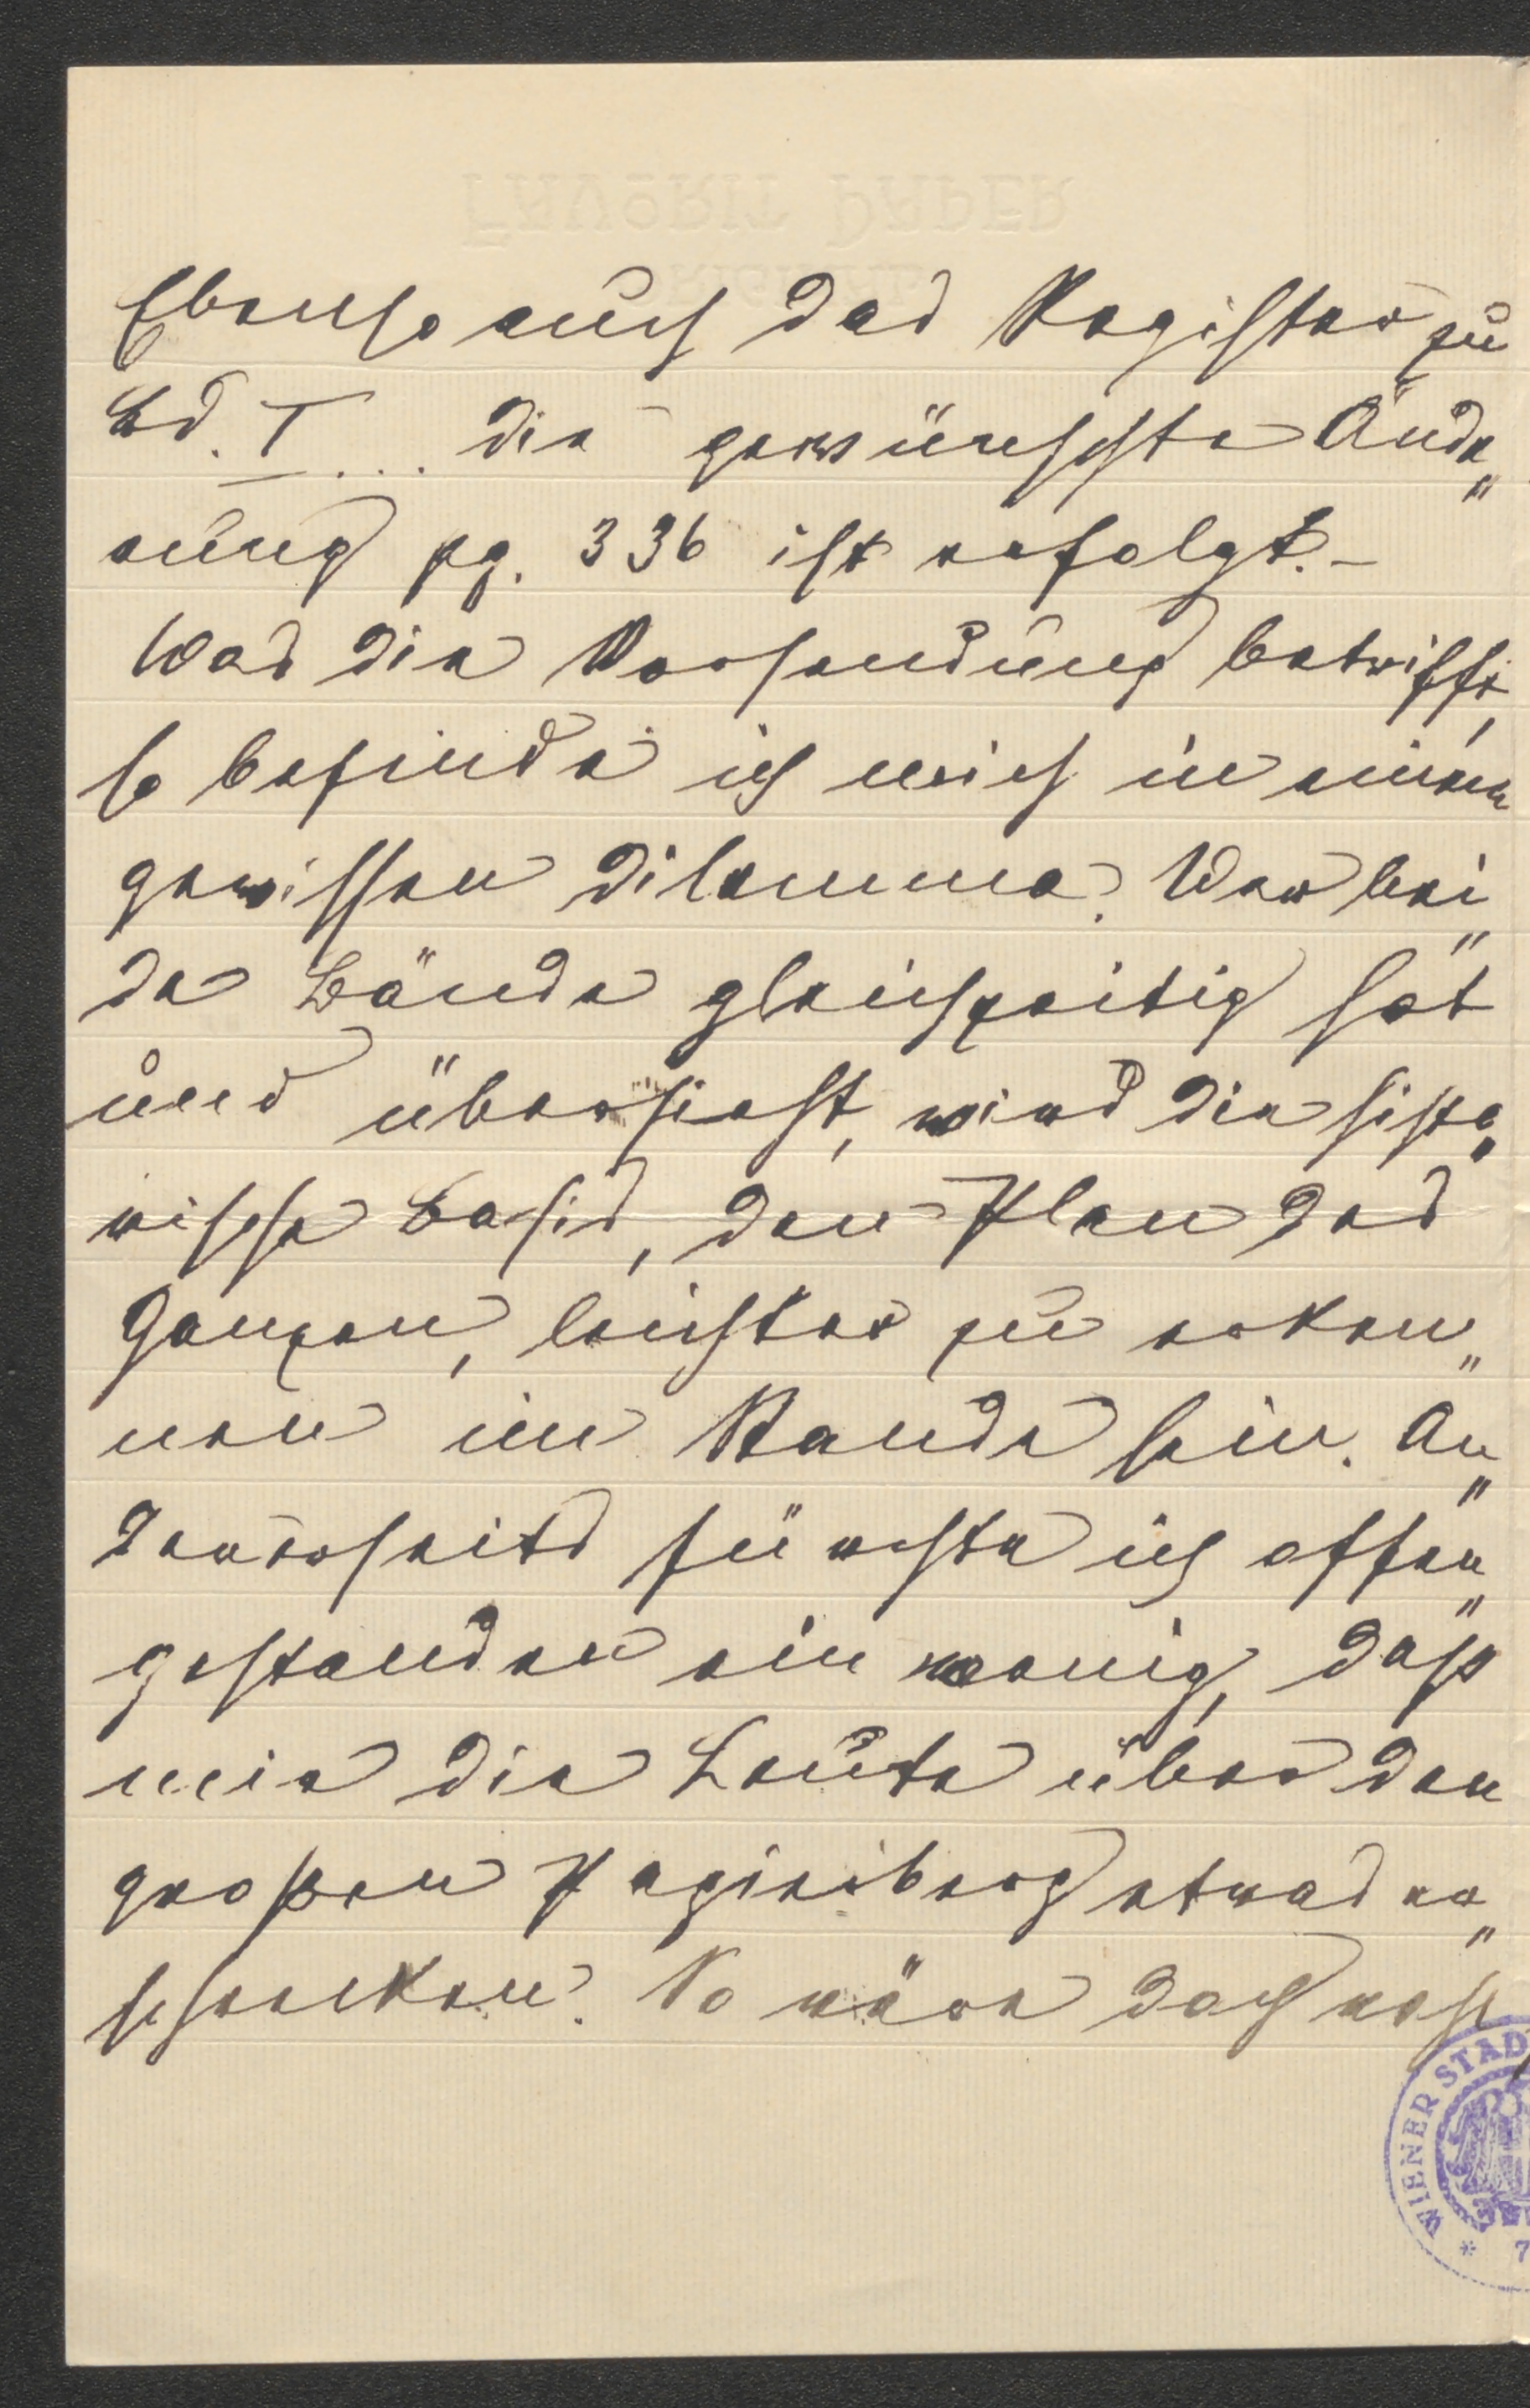 FAVORIT PAPER
Ebenso auch das Register zu
Bd. I... die gewünschte Ände„
rung pg. 336 ist erfolgt. –
Was die Versendung betrifft,
so befinde ich mich in einem
gewissen Dilemma. Wer bei„
de Bände gleichzeitig hat
und übersieht, wird die histo„
rische Basis, den Plan des
Ganzen, leichter zu erken„
nen im Stande sein. An„
dererseits fürchte ich offen„
gestanden ein wenig, dass
mir die Leute über den
großen Papierberg etwas er„
schrecken. So wäre doch
WIENER STAD
* 7